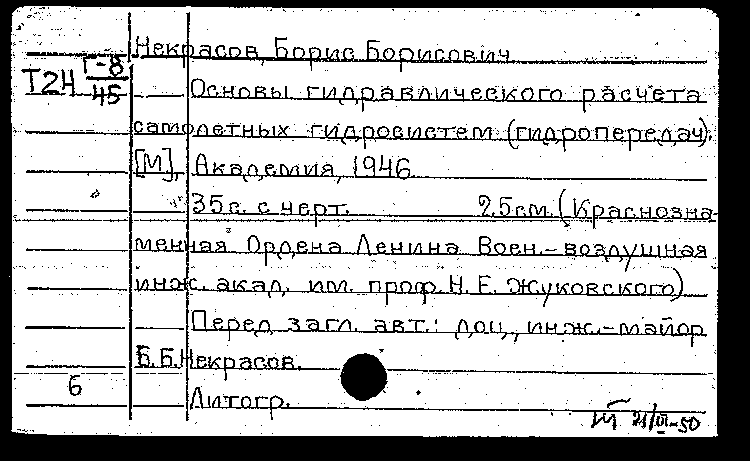 Некрасов, Борис Борисович
Т24 Г-8/45
Основы гидравлического расчета
самолетных гидросистем (гидропередач).
[М], Академия, 1946
35 с. с черт. 25 см. (Краснозна-
менная Ордена Ленина Воен.-воздушная
инж. акад. им. проф. Н. Е. Жуковского)
Перед загл. авт.: доц., инж.-майор
Б. Б. Некрасов.
6
Литогр.
21/III-50